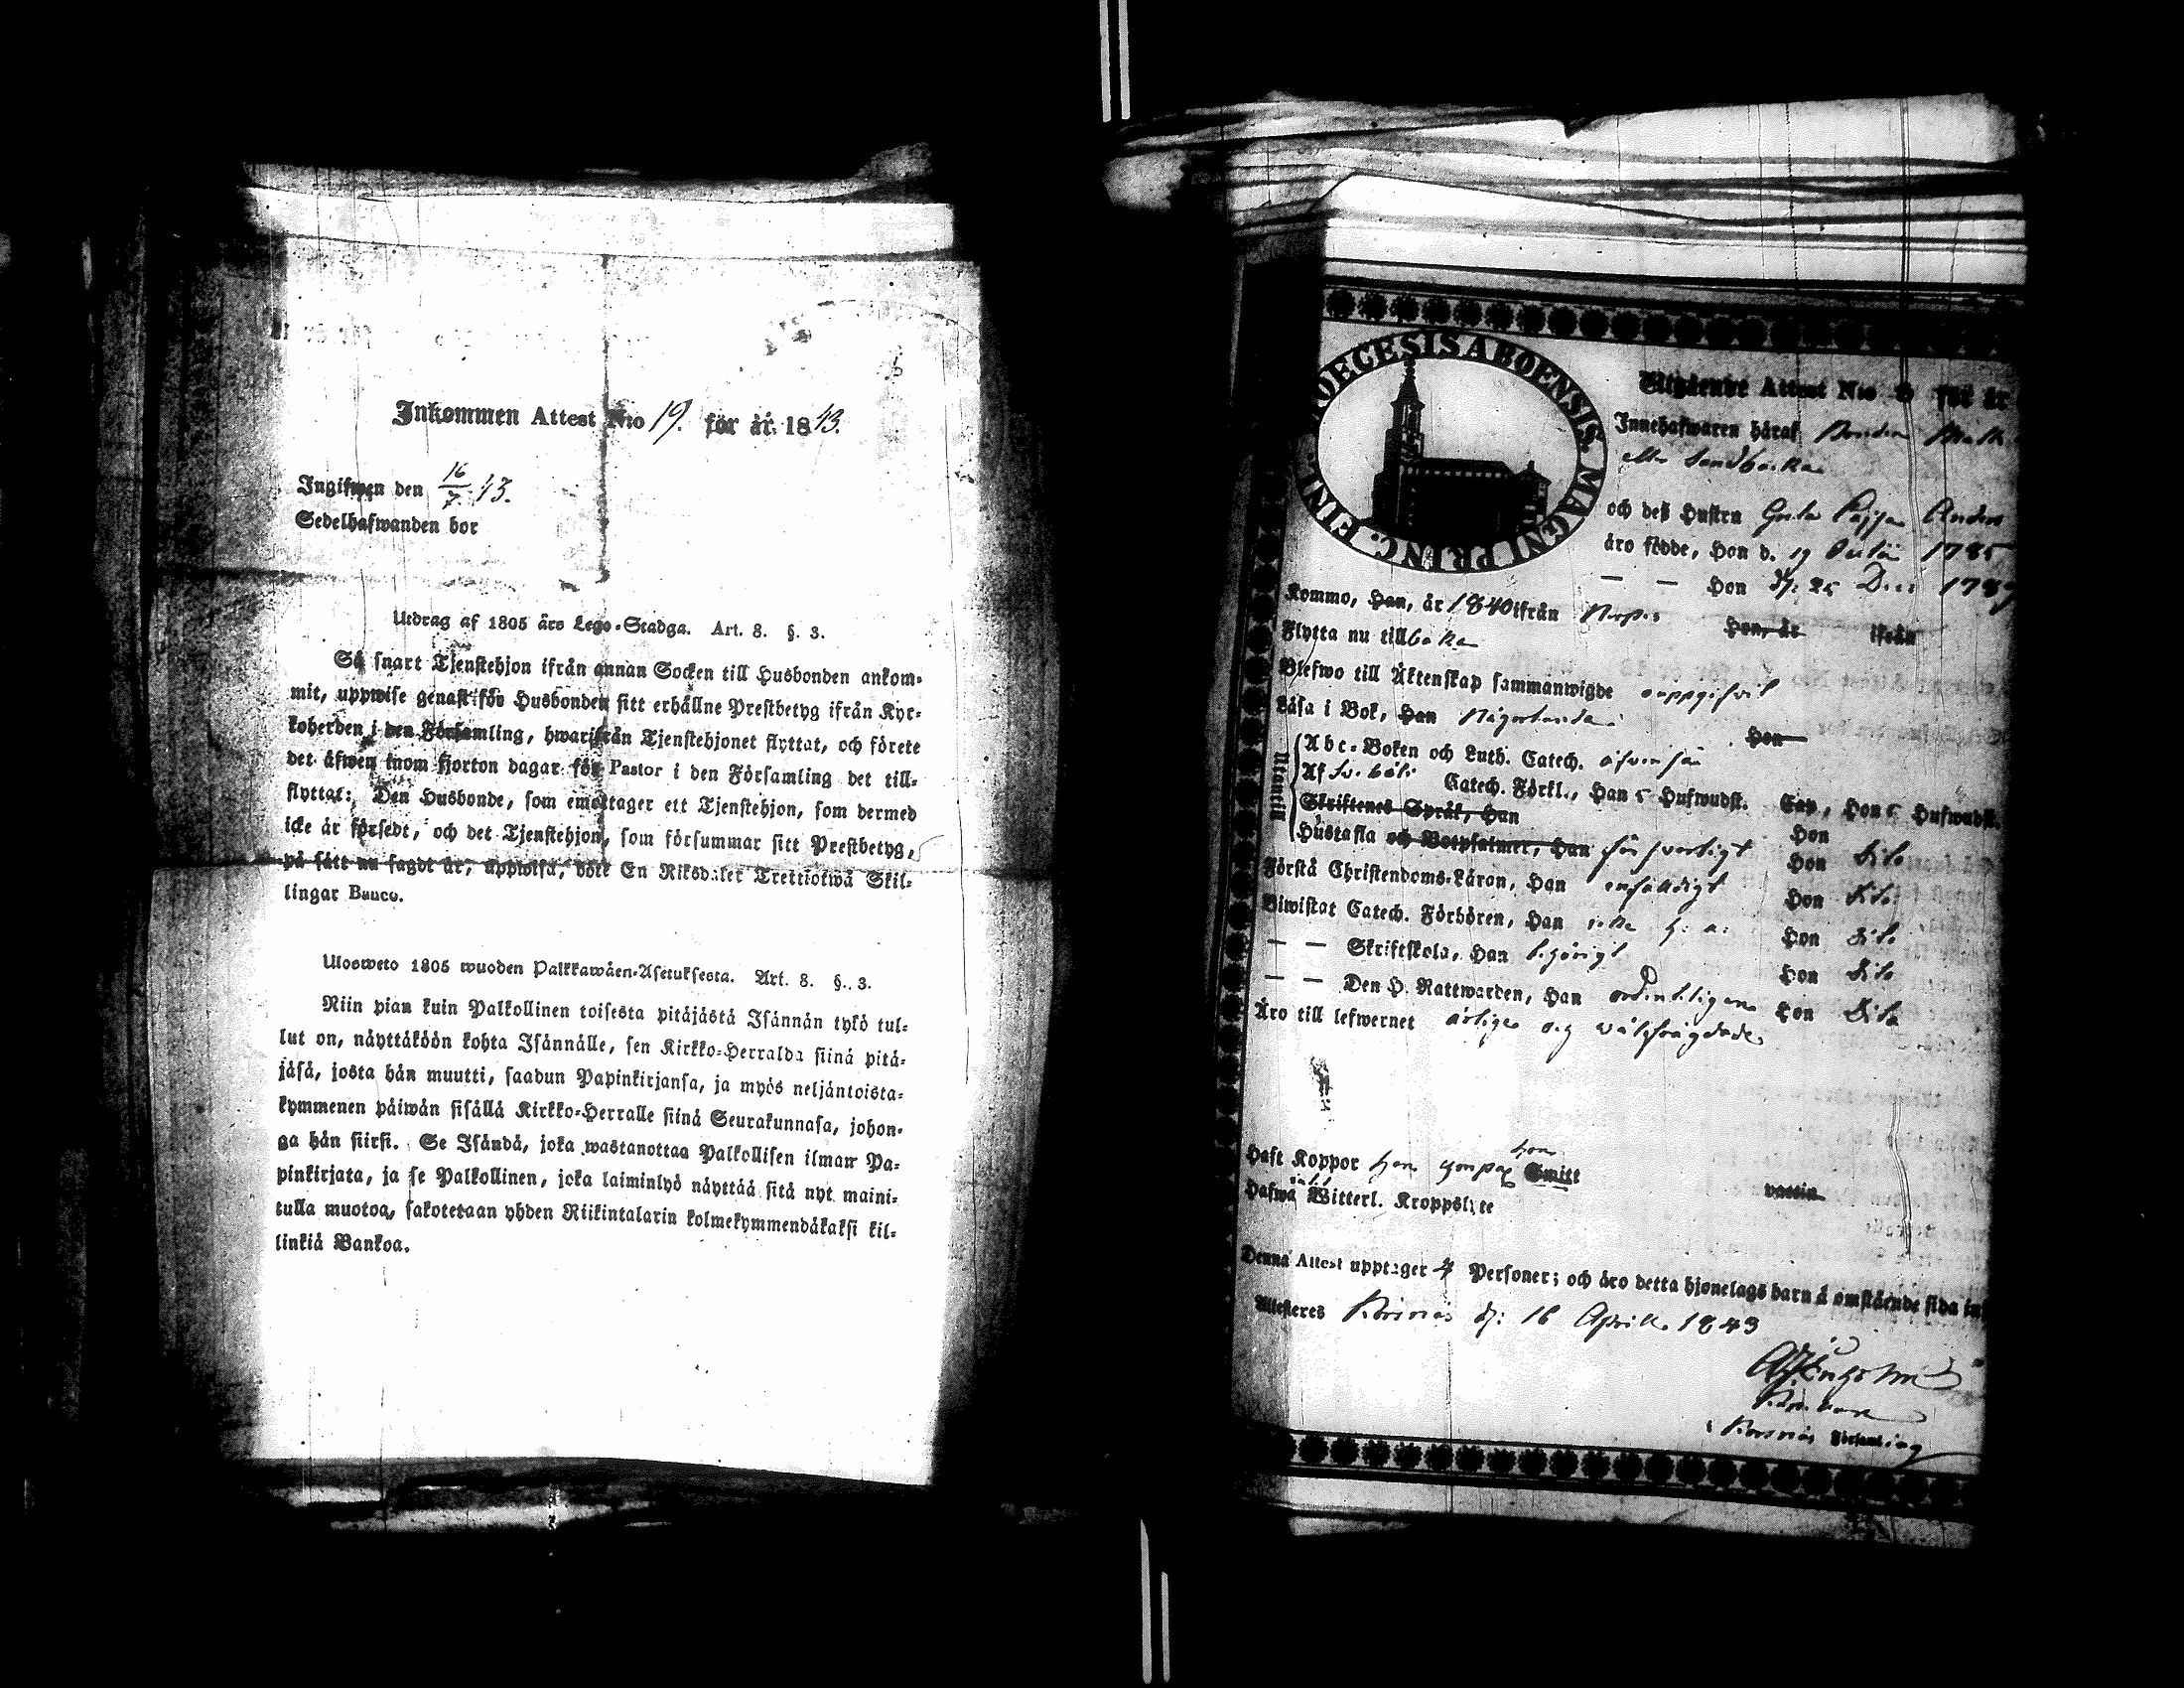 Inkommen Attest N:o 19. för år 1843.
Ingifwen den 16/7 43.
Sedelhafwanden bor
Utdrag af 1805 års Lego-Stadga. Art. 8. §. 3.
Så snart Tjenstehjon ifrån annan Socken till Husbonden ankom-
mit, uppwise genast för Husbonden sitt erhållne Prestbetyg ifrån Kyr-
koherden i den Församling, hwarifrån Tjenstehjonet flyttat, och förete
det äfwen inom fjorton dagar för Pastor i den Församling det till-
flyttat: Den Husbonde, som emottager ett Tjenstehjon, som dermed
icke är försedt, och det Tjenstehjon, som försummar sitt Prestbetyg,
på sätt nu sagdt är, uppwisa, böte En Riksdaler Trettiotwå Skil-
lingar Banco.
Ulosweto 1805 wuoden Palkkawäen-Asetuksesta. Art. 8. §. 3.
Niin pian kuin Palkollinen toisesta pitäjästä Isännän tykö tul-
lut on, näyttäköön kohta Isännälle, sen Kirkko-Herralda siinä pitä-
jäsä, josta hän muutti, saadun Papinkirjansa, ja myös neljäntoista-
kymmenen päiwän sisällä Kirkko-Herralle siinä Seurakunnasa, johon-
ga hän siirsi. Se Isändä, joka wastanottaa Palkollisen ilman Pa-
pinkirjata, ja se Palkollinen, joka laiminlyö näyttää sitä nyt maini-
tulla muotoa, sakotetaan yhden Riikintalarin kolmekymmendäkaksi kil-
linkiä Bankoa.
DIOECESIS ABOENSIS. MAGNI PRINC. FINL.
Utgående Attest N:o 8 för år
Innehafwaren häraf Bonden Matts
eller Sandbacka
och deß Hustru Greta Caijsa Anders
äro födde, Han d. 19 Octobr 1785
— — Hon d: 25 Dec: 1789
Kommo, Han, år 1840 ifrån Hon, år ifrån
Flytta nu till baka
Blefwo till Äktenskap sammanwigde ouppgifvit
Läsa i Bok, Han någorlunda Hon
Utantill
Abc-Boken och Luth. Catech. äfven så
Af Sv. Catech. Förkl., Han 5 Hufwudst. Cap, Hon 5 Hufwudst.
Skriftenes Språk, Han Hon
Hustafla och Botpsalmer, Han försvarligt Hon dito
Förstå Christendoms-Läran, Han enfaldigt Hon dito
Biwistat Catech. Förhören, Han Hon dito
— — Skriftskola, Han behörigt Hon dito
— — Den H. Nattwarden, Han ordentligen Hon dito
Äro till lefwernet ärlige och välfrägdade
Haft Koppor han hon Smitt vaccin
Hafwa Witterl. Kroppslyte
Denna Attest upptager 4 Personer; och äro detta hjonelags barn å omstående sida in
Attesteres Korsnäs d: 16 Aprill 1843
i Korsnäs Församling